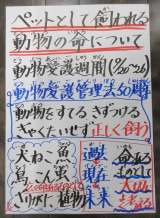 ペットとして飼われる
動物の命について
動物愛護週間(9/20~26)
動物愛護管理法50周年
動物をすてる きずつける
ぎゃくたいせず 正しく飼う
犬 ねこ 魚
鳥 こん虫
植物
過去
現在
未来
命ある
もの
大切
考える